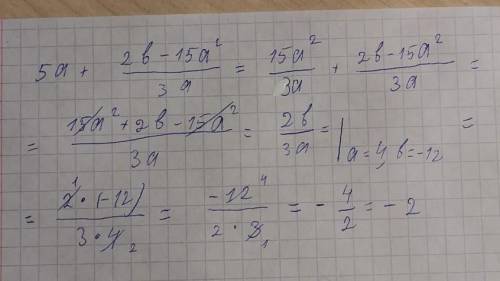 5a + (2b - 15a²)/(3a) = (15a²)/(3a) + (2b - 15a²)/(3a) =
= (15a² + 2b - 15a²)/(3a) = (2b)/(3a) = | a = 4, b = -12 =
= (2¹ · (-12))/(3 · 4₂) = (-12⁴)/(2 · 3₁) = - 4/2 = - 2